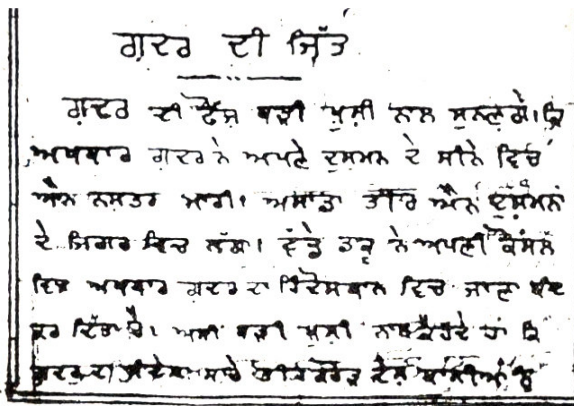 ਗ਼ਦਰ ਦੀ ਜਿੱਤ
ਗ਼ਦਰ ਦੀ ਫੌਜ਼ ਬੜੀ ਖੁਸ਼ੀ ਨਾਲ ਸੁਨਲਗੇ। ਕਿ
ਅਖਬਾਰ ਗ਼ਦਰ ਨੇ ਅਪਣੇ ਦੁਸ਼ਮਨ ਦੇ ਸੀਨੇ ਵਿਚ
ਐਨ ਨਸ਼ਤਰ ਮਾਰੀ। ਅਸਾਡਾ ਤੀਰ ਐਨ ਦੁਸ਼ਮਨਾਂ
ਦੇ ਜਿਗਰ ਵਿਚ ਲੱਗਾ। ਵੱਡੇ ਡਾਕੂ ਨੇ ਅਪਣੀ ਕੌਂਸਲ
ਵਿਚ ਅਖਬਾਰ ਗ਼ਦਰ ਦਾ ਹਿੰਦੋਸਤਾਨ ਵਿਚ ਜਾਣਾ ਬੰਦ
ਕਰ ਦਿੱਤਾ ਹੈ। ਅਸੀ ਬੜੀ ਖੁਸ਼ੀ ਨਾਲ ਕੈਹਂਦੇ ਹਾਂ ਕਿ
ਗ਼ਦਰ ਦਾ ਸੰਦੇਸਾ ਸਾਰੇ ਤੀਹ ਕਰੋੜ ਦੇਸ਼ ਬਾਸੀਆਂ ਨੂੰ